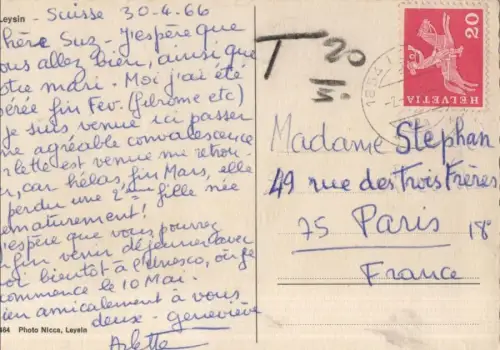 Leysin - Suisse 30-4-66
Chère Suz - J'espère que
vous allez bien, ainsi que
votre mari. Moi j'ai été
opérée fin Fév. (fibrome etc)
je suis venue ici passer
une agréable convalescence
Arlette est venue me retrou-
ver, car hélas, fin Mars, elle
a perdu une 2ème fille née
prématurement!
J'espère que vous pourrez
enfin venir déjeuner avec
moi bientôt à l'Unesco, où je
recommence le 10 Mai.
Bien amicalement à vous
deux - geneviève
Arlette
464 Photo Nicca, Leysin
T 20
HELVETIA
20
Madame Stephan
49 rue des Trois Frères
75 Paris 18e
France